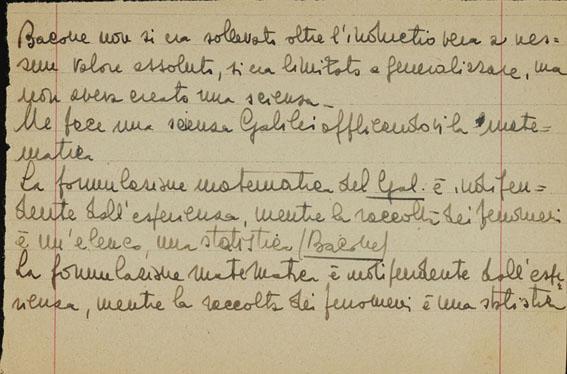 Bacone non si era sollevato oltre l'inductio vera a nes=
sun valore assoluto, si era limitato a generalizzare, ma
non aveva creato una scienza_
Ne fece una scienza Galilei applicandovi la mate=
matica
La formulazione matematica del Gal. è indipen=
dente dall'esperienza, mentre la raccolta dei fenomeni
è un'elenco, una statistica (Bacone)
La formulazione matematica è indipendente dall'espe=
rienza, mentre la raccolta dei fenomeni è una statistica